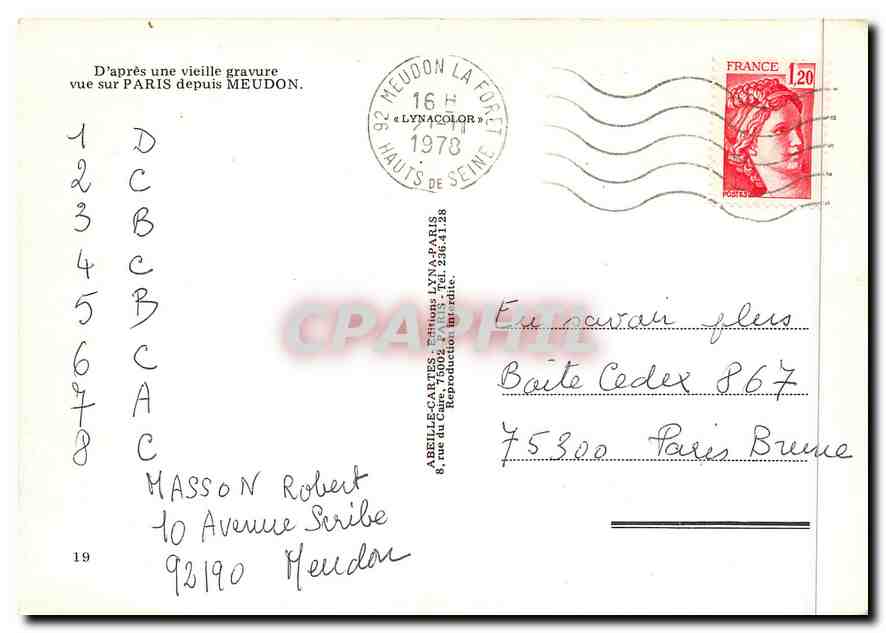 D'après une vieille gravure
vue sur PARIS depuis MEUDON.
1 D
2 C
3 B
4 C
5 B
6 C
7 A
8 C
MASSON Robert
10 Avenue Scribe
92190 Meudon
19
92 MEUDON LA FORET
16 H
« LYNACOLOR »
21-11
1978
HAUTS DE SEINE
FRANCE 1,20
POSTES
ABEILLE-CARTES - Editions LYNA-PARIS
8, rue du Caire, 75002 PARIS - Tél. 236.41.28
Reproduction interdite.
CPAPHIL
En savoir plus
Boite Cedex 867
75300 Paris Brune